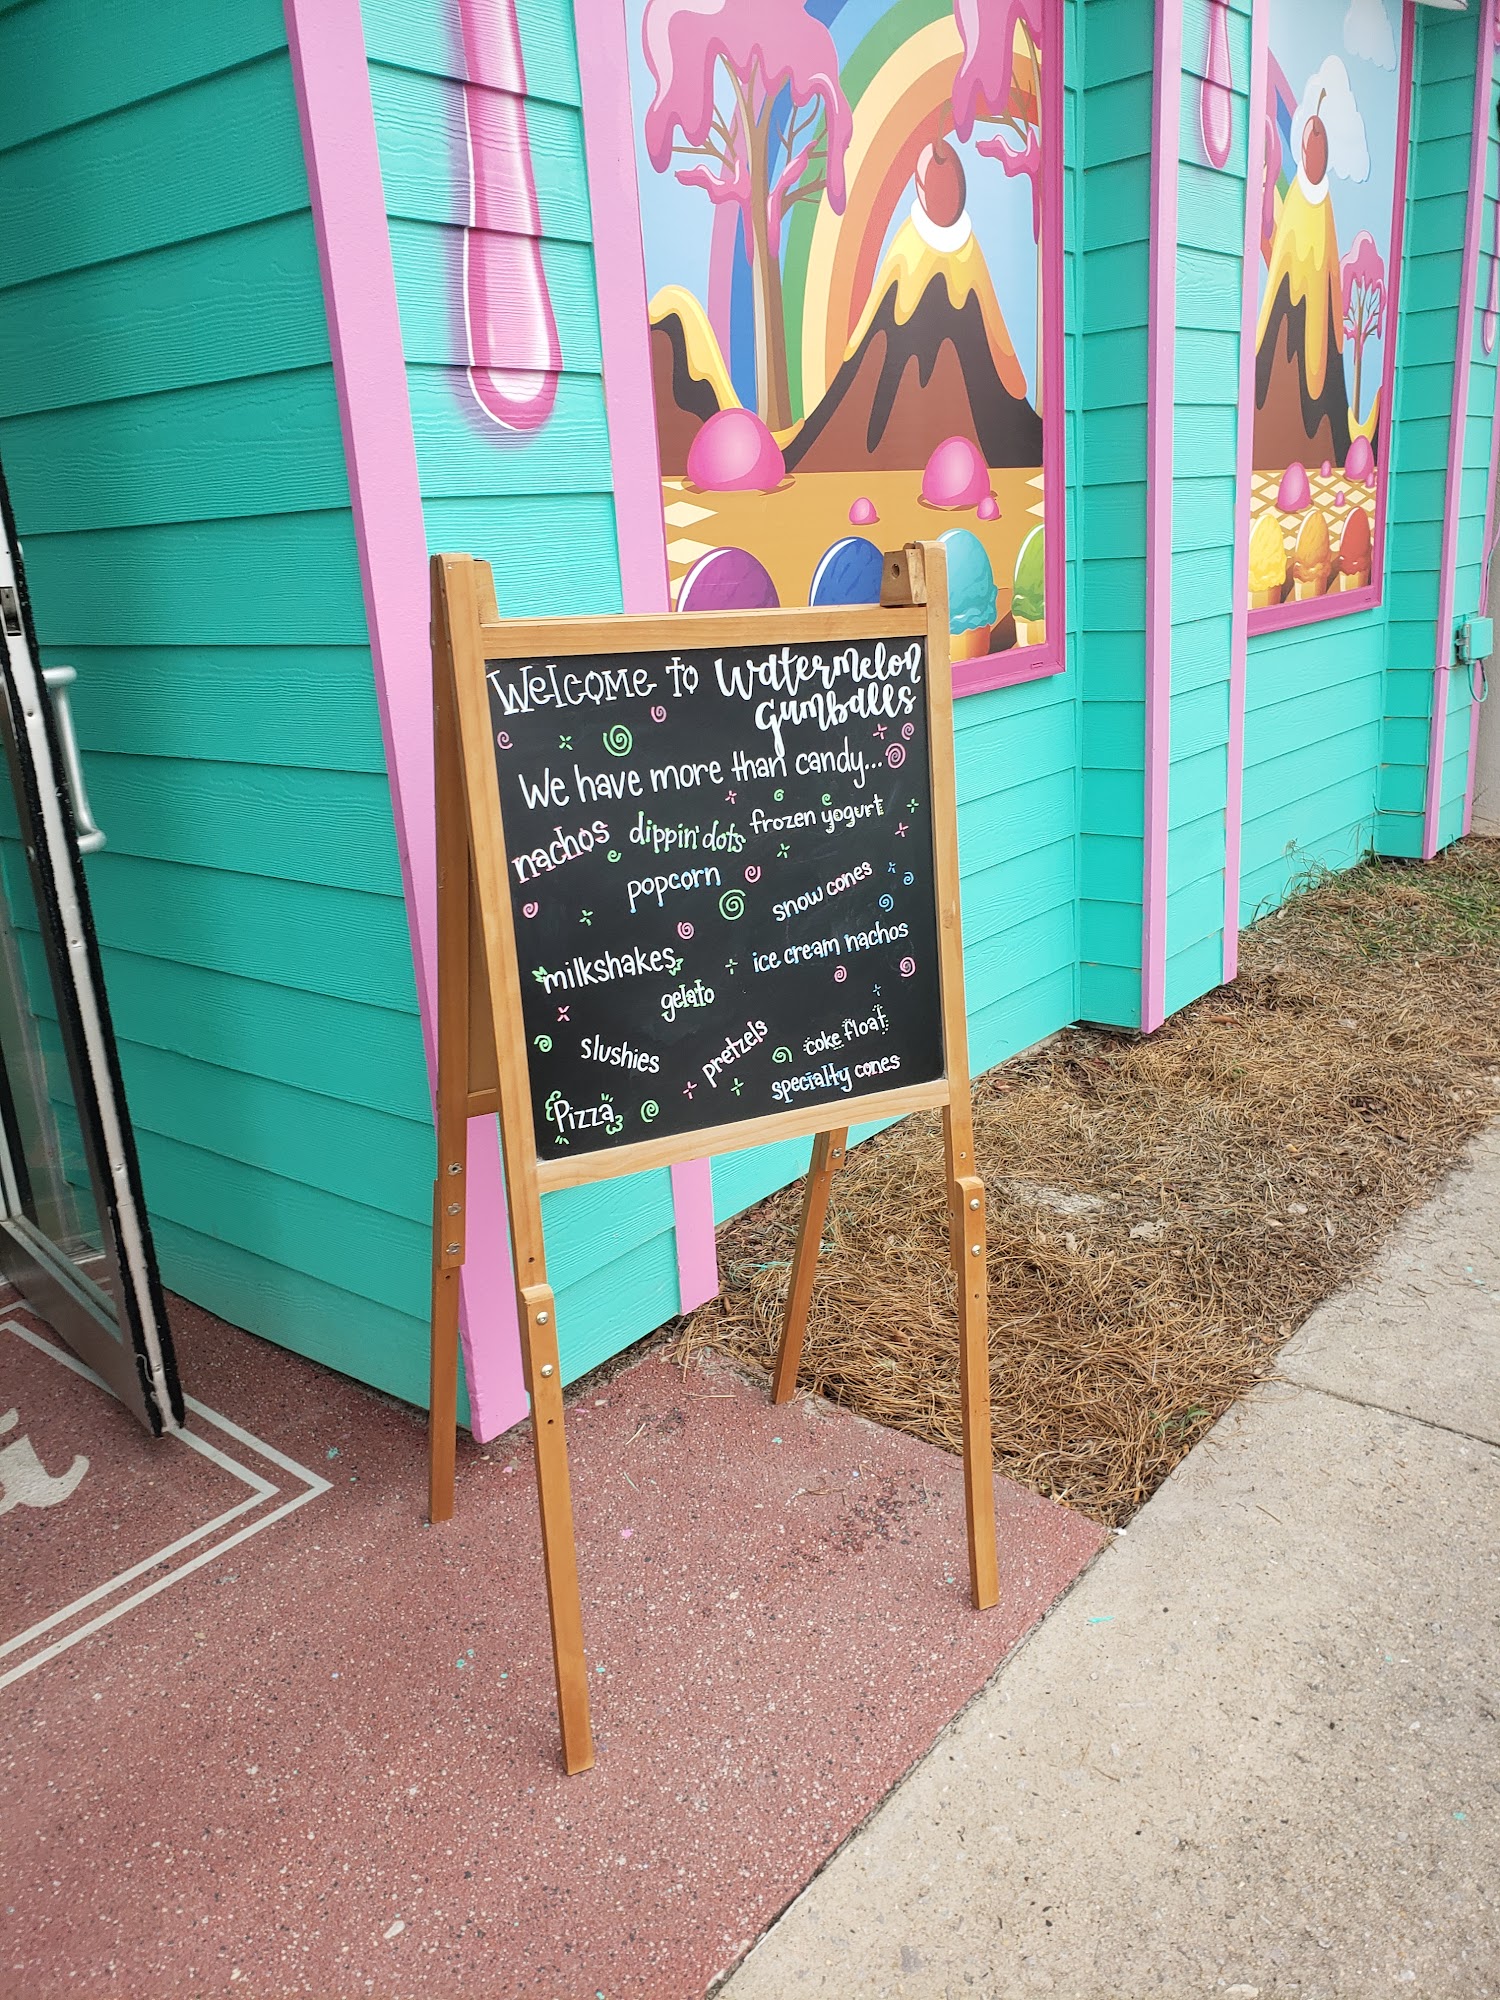 Welcome to Watermelon
Gumballs
We have more than candy...
nachos dippin' dots frozen yogurt
popcorn snow cones
milkshakes ice cream nachos
gelato
slushies pretzels coke float
Pizza specialty cones